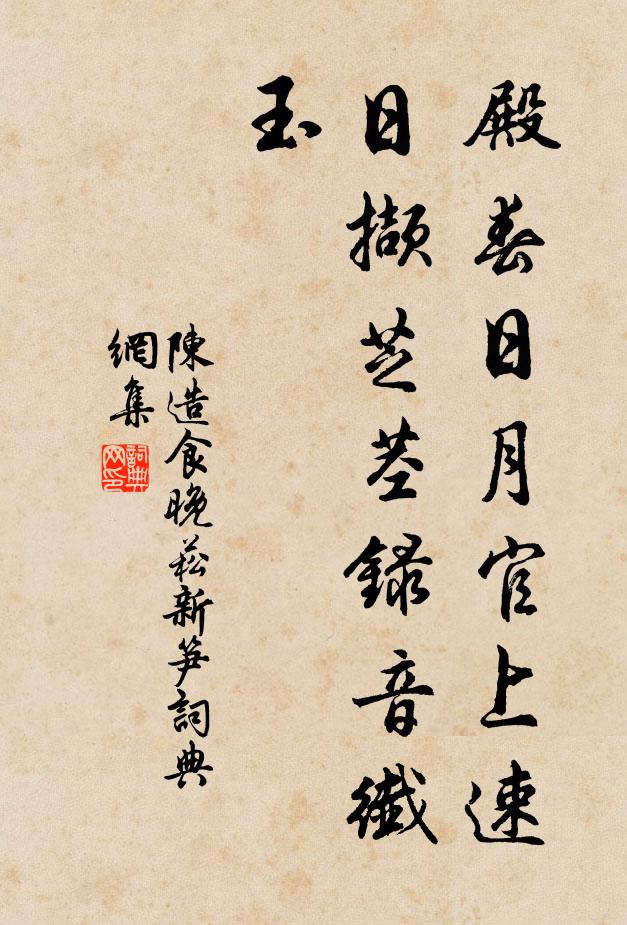 殿春日月官上速
日擷芝莖錄音纖
玉
陳造食晚菘新笋詞典
網集
詞典网印